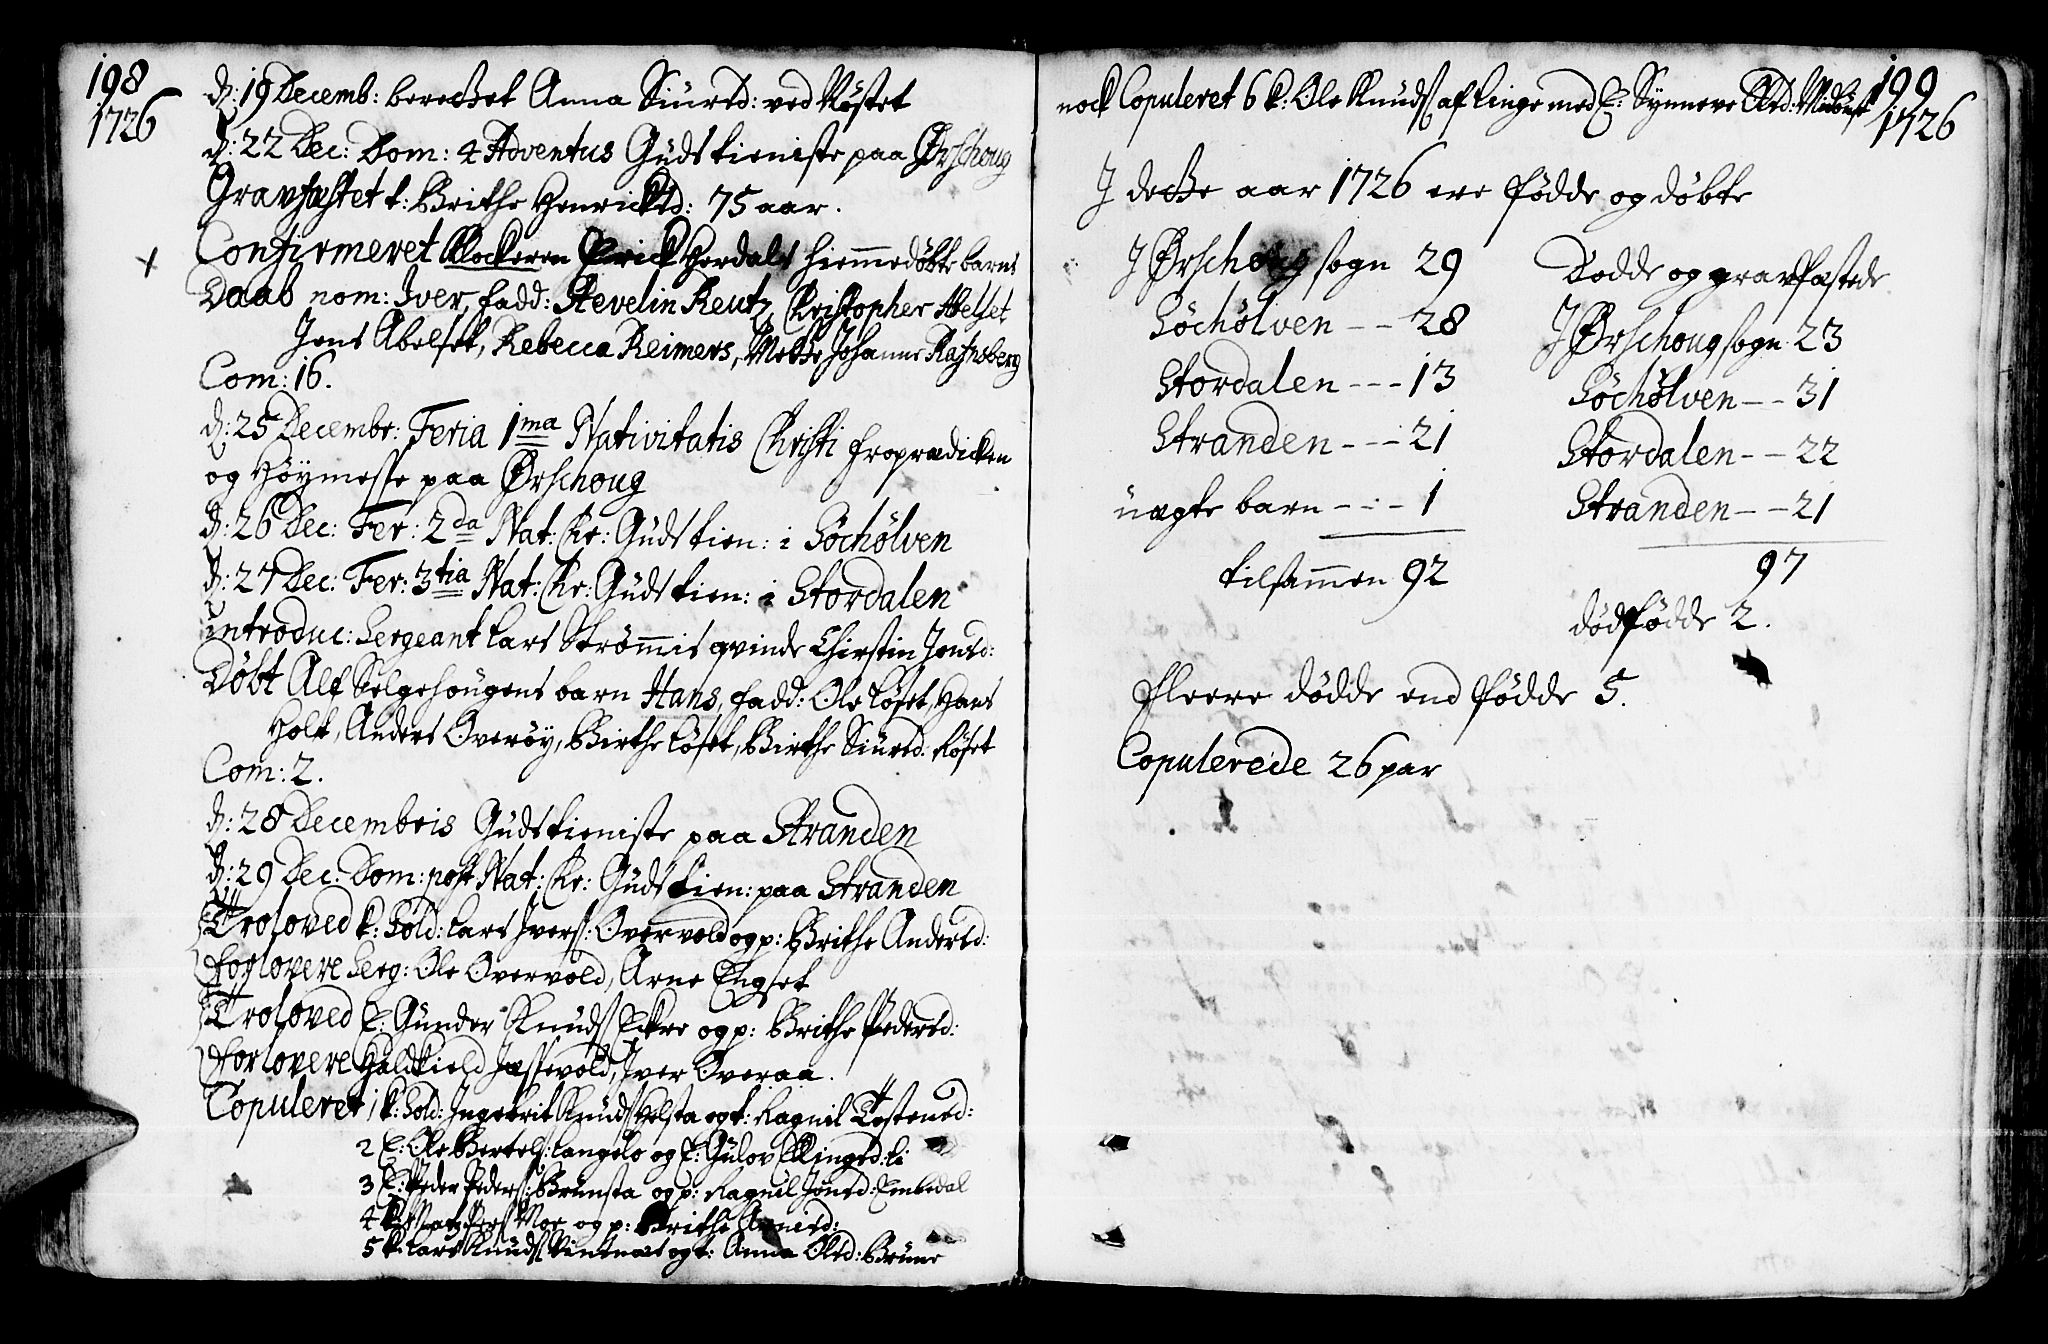 198
1726
d: 19 Decemb: berettet Anna Siurtd: ved Røstet
d: 22 Dec: Dom: 4 Adventus Gudstieniste paa Ørschoug
Gravfæstet k: Brithe Henrichtd: 75 aar.
Confirmeret Klockeren Erick Hordals hiemmedøbte barns
Daab nom: Iver, fadd: Stevelin Reutz, Christopher Abelset
Jens Abelset, Rebecca Reimers, Mette Johanne Rafnsberg
Com: 16.
d: 25 Decembr: Feria 1ma Nativitatis Christi froprædicken
og Høymesse paa Ørschoug
d: 26 Dec: Fer: 2da Nat: Chr: Gudstien: i Søchølven
d: 27 Dec: Fer: 3tia Nat: Chr: Gudstien: i Stordalen
introduc: Sergeant Lars Strømmis qvinde Chirstin Jensd:
Døbt Alf Selgehougens barn Hans, fadd: Ole Løset, Hans
Holt, Anders Overøy, Birthe Løset, Birthe Siurtd: Løset
Com: 2.
d: 28 Decembris Gudstieniste paa Stranden
d: 29 Dec: Dom: post Nat: Chr: Gudstien: paa Stranden
Troloved k: Sold: Lars Ivers: Overvold og p: Brithe Andersd:
Forlovere Serg: Ole Overvold, Arne Engset
Troloved E: Gunder Knuds Eckre og p: Brithe Pedersd:
Forlovere Haldkield Jassevold, Iver Overaa.
Copuleret 1 k: Sold: Ingebrit Knuds Helsta og k: Ragnil Tostensd:
2 E: Ole Bertels: Langelo og E: Gulov Ellingsd: Li
3 E: Peder Peders: Brunsta og p: Ragnil Jonsd: Embedal
4 k: Matz Pers Moe og p: Brithe Arnisd:
5 k: Lars Knuds Vintnæs og k: Anna Olsd: Brune
199
1726
nock Copuleret 6 k: Ole Knuds af Linge med E: Synneve Olsd:
I dette aar 1726 ere fødde og døbte
I Ørschoug sogn 29
Søchølven -- 28
Stordalen --- 13
Stranden --- 21
uægte barn --- 1
tilsammen 92
Dødde og gravfæstede
I Ørschoug sogn 23
Søchølven -- 31
Stordalen -- 22
Stranden -- 21
97
dødfødde 2.
Fleere dødde end fødde 5.
Copulerede 26 par